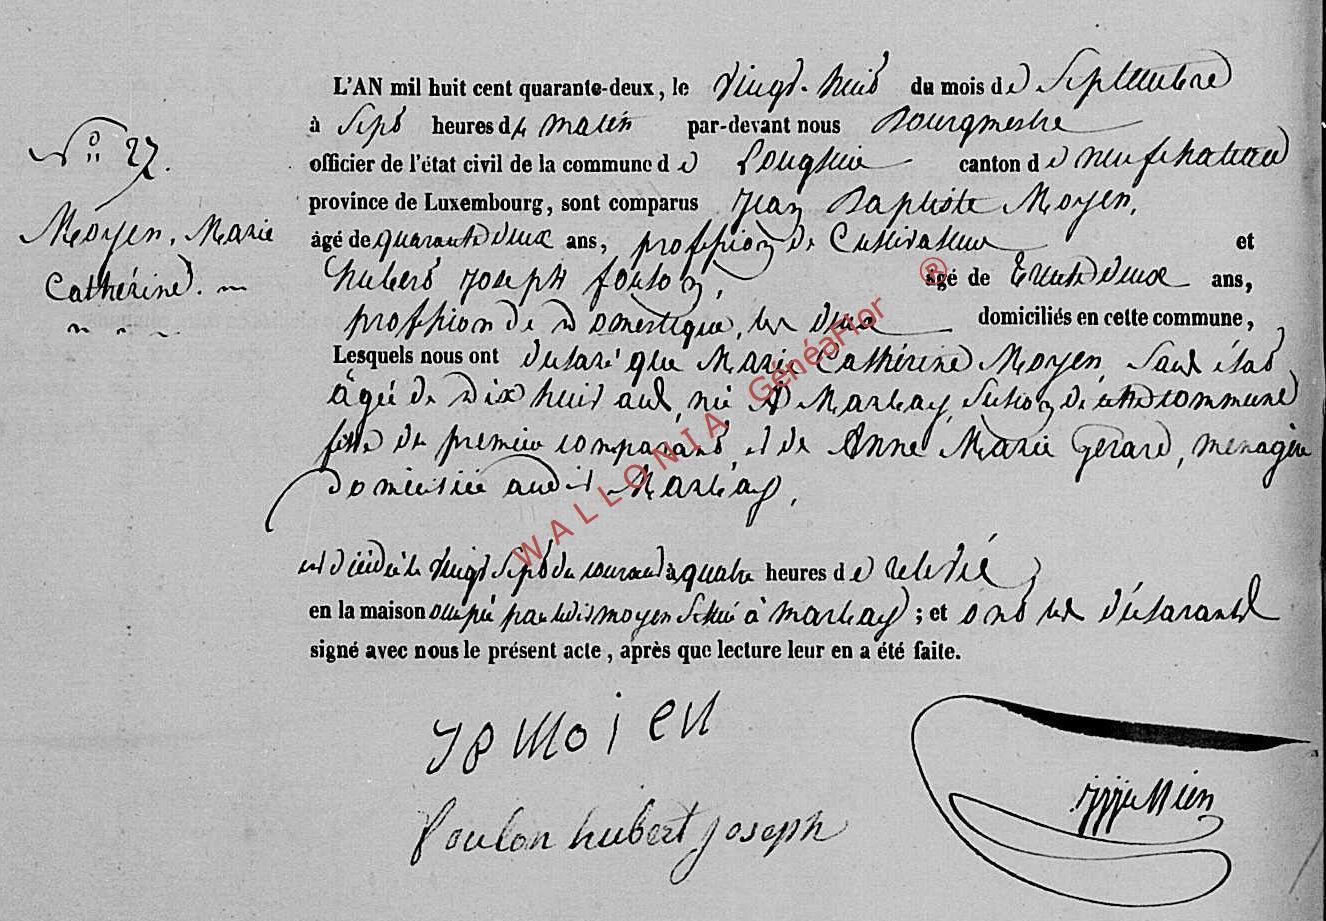 N° 27.
Moyen, Marie
Catherine.
L'AN mil huit cent quarante-deux, le vingt-huit du mois de Septembre
à Sept heures du matin par-devant nous Bourgmestre
officier de l'état civil de la commune de Longlier canton de neufchateau
province de Luxembourg, sont comparus Jean Baptiste Moyen,
âgé de quarante deux ans, profession de Cultivateur et
hubert joseph foulon, âgé de trente deux ans,
profession de domestique, les deux domiciliés en cette commune,
Lesquels nous ont declaré que Marie Cathérine Moyen, sans état
âgée de dix huit ans, née à Marbay, Section de cette commune
fille du premier comparant, et de Anne Marie Gerard, menagère
domiciliée audit Marbay,
est décédée le vingt sept du courant à quatre heures de relevée
en la maison occupée par ledit moyen située à marbay ; et ont les déclarants
signé avec nous le présent acte, après que lecture leur en a été faite.
JB Moien
foulon hubert joseph
WALLONIA GénéaFlor ®